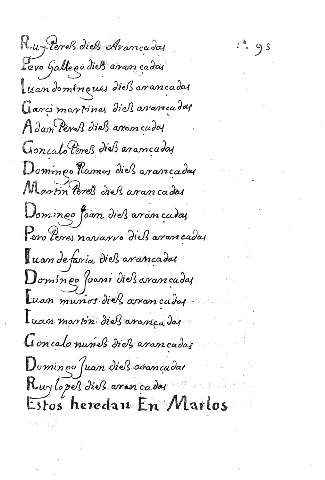 Ruy Pereß dieß Arançadas fº. 95
Pero Gallego dieß arançadas
Iuan domingues dieß arançadas
Garçi martines dieß arançadas
Adan Pereß dieß arançadas
Gonçalo Pereß dieß arançadas
Domingo Ramos dieß arançadas
Martin Pereß dieß arançadas
Domingo Joan dieß arançadas
Pero Peres navarro dieß arançadas
Iuan de faria dieß arançadas
Domingo Joani dieß arançadas
Iuan muños dieß arançadas
Iuan martin dieß arançadas
Gonçalo nuñeß dieß arançadas
Domingo Juan dieß arançadas
Ruy lopeß dieß arançadas
Estos heredan En Martos